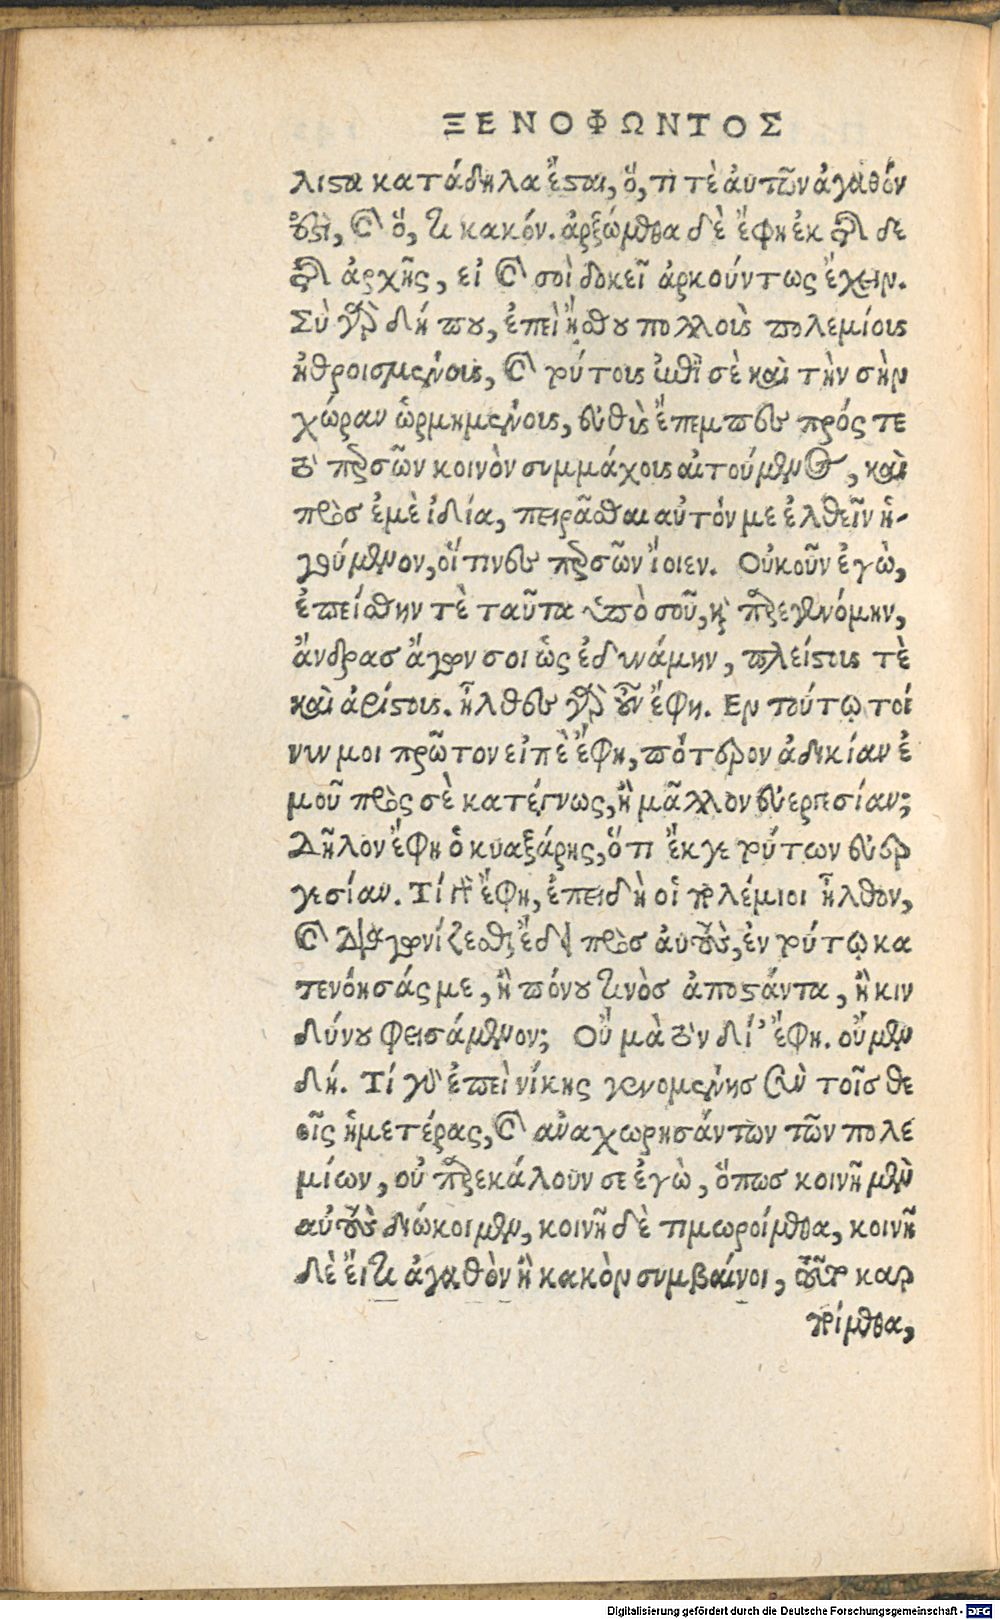 ΞΕΝΟΦΩΝΤΟΣ
λιστα κατάδηλα ἔσται, ὅ, τι τὲ ἀυτῶν ἀγαθόν
ἐστὶ, καὶ ὅ, τι κακόν. ἀρξώμεθα δὲ ἔφη ἐκ τῆσ δε
τῆσ ἀρχῆς, εἰ καὶ σοὶ δοκεῖ ἀρκούντως ἔχειν.
Σὺ γὰρ δή που, ἐπεὶ ἤσθου πολλοὺς πολεμίους
ἠθροισμένους, καὶ τούτους ἐπὶ σὲ καὶ τὴν σὴν
χώραν ὡρμημένους, εὐθὺς ἔπεμπες πρός τε
τὸ περσῶν κοινὸν συμμάχους αἰτούμενος, καὶ
πρὸσ ἐμὲ ἰδία, πειρᾶσθαι αὐτόν με ἐλθεῖν ἡ-
γούμενον, οἵτινες περσῶν ἴοιεν. Οὐκοῦν ἐγὼ,
ἐπείσθην τὲ ταῦτα ὑπὸ σοῦ, καὶ παρεγενόμην,
ἄνδρασ ἄγων σοι ὡς ἐδυνάμην, πλείστους τὲ
καὶ ἀρίστους. ἦλθες γὰρ οὖν ἔφη. Εν τούτῳ τοί
νυν μοι πρῶτον εἰπὲ ἔφη, πότερον ἀδικίαν ἐ
μοῦ πρὸς σὲ κατέγνως, ἢ μᾶλλον εὐεργεσίαν;
Δῆλον ἔφη ὁ κυαξάρης, ὅτι ἔκγε τούτων εὐερ
γεσίαν. Τί γὰρ ἔφη, ἐπειδὴ οἱ πολέμιοι ἦλθον,
καὶ διαγωνίζεσθαι ἔδει πρὸσ αὐτοὺς, ἐν τούτῳ κα
τενόησάς με, ἢ πόνου τινὸσ ἀποστάντα, ἤ κιν
δύνου φεισάμενον; Οὒ μὰ τὸν δί’ ἔφη. οὔ μεν
δή. Τί γὰρ ἐπεὶ νίκης γενομένησ σὺν τοῖσ θε
οῖς ἡμετέρας, καὶ αναχωρησάντων τῶν πολε
μίων, οὐ παρεκάλουν σε ἐγὼ, ὅπωσ κοινῆ μὲν
αὐτοὺς διώκοιμεν, κοινῆ δὲ τιμωροίμεθα, κοινῆ
δὲ ἔι τι ἀγαθὸν ἢ κακὸν συμβαίνοι, τοῦτο καρ
ποίμεθα,
Digitalisierung gefördert durch die Deutsche Forschungsgemeinschaft - DFG